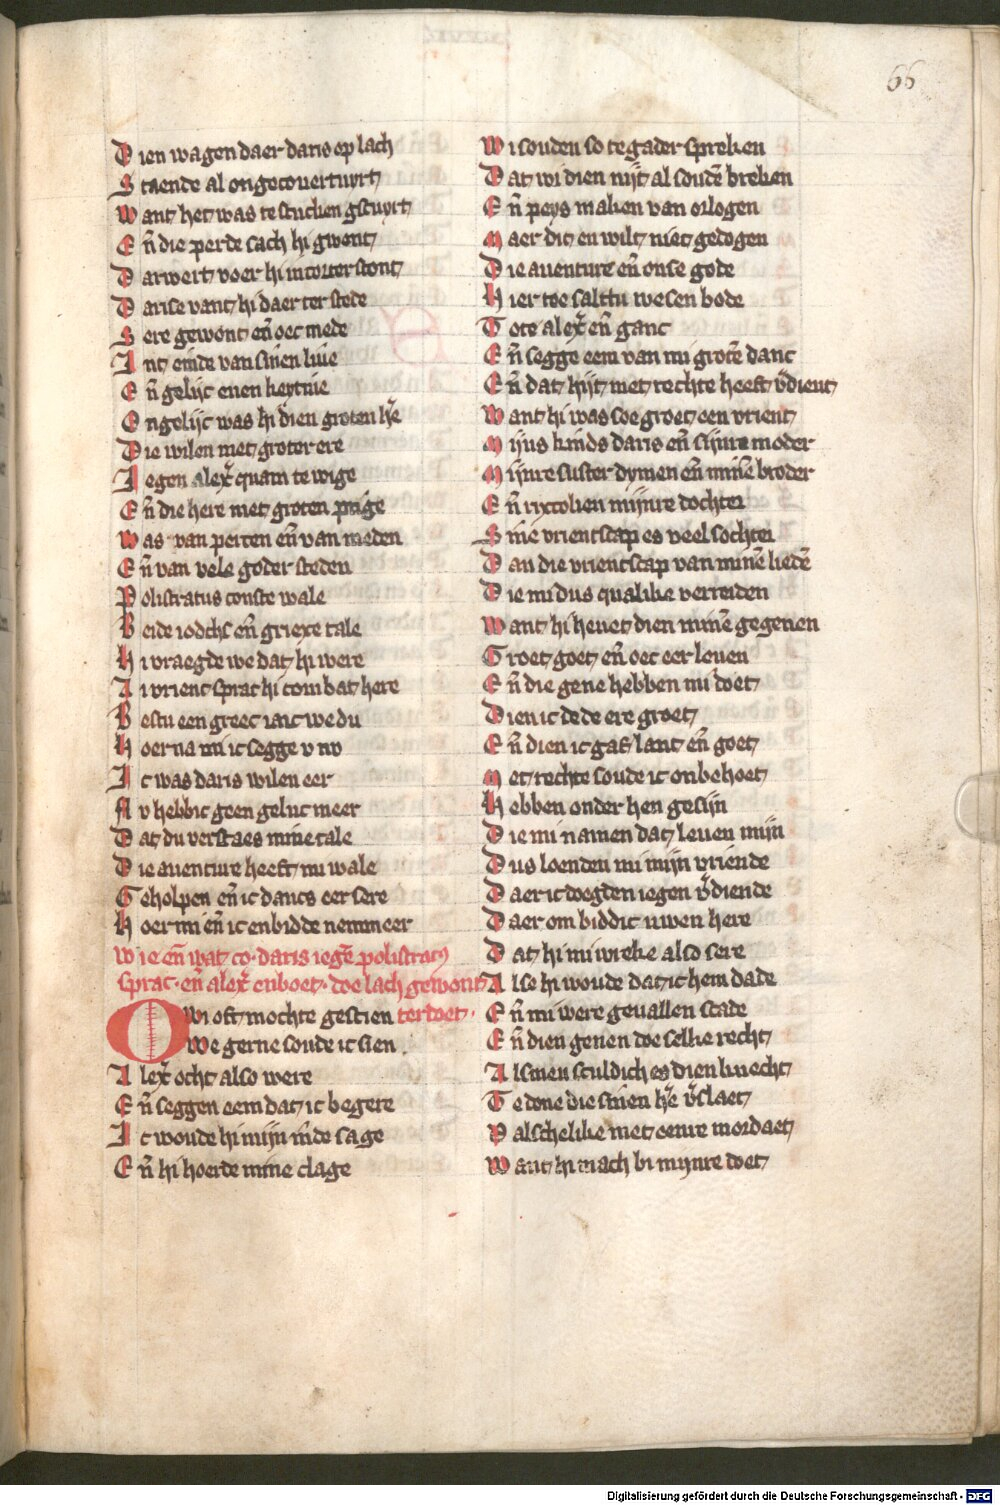 66
Dien wagen daer daris op lach
Staende al ongecouertuyrt
Want het was te stucken gstuyrt
Eñ die perde sach hi gwont
Darwert voer hi in corter stont
Darise vant hi daer ter stede
Sere gewont eñ oec mede
Int einde van sinen liue
Eñ gelijc enen keytiue
Ongelijc was hi dien groten hẽ
Die wilen met groter ere
Iegen alex̃ quam te wige
Eñ die here met groten prige
Was van perten eñ van meden
Eñ van vele goder steden
Polistratus conste wale
Beide iodchs eñ griexe tale
Hi vraegde we dat hi were
Ai vrient sprac hi com bat here
Bestu een greec iaic we du
Hoer na mi ic segge v nv
Ic was daris wilen eer
Nv hebbic geen geluc meer
Dat du verstaes mine tale
Die auenture heeft mi wale
Geholpen eñ ic dancs eer sere
Hoer mi eñ ic en bidde nemmeer
Wie eñ wat co. daris iegẽ polistratꝰ
sprac. eñ alex̃ enboet. doe lach gewont
Owi oft mochte gescien ter doet.
We gerne soude ic sien
Alex̃ ocht also were
Eñ seggen eem dat ic begere
Ic woude hi mijn m̃de sage
Eñ hi hoerde mine clage
Wi souden so tegader spreken
Dat wi dien nijt al soudẽ breken
Eñ peys maken van orlogen
Maer dit en wilt niet gedogen
Die auenture eñ onse gode
Hier toe saltu wesen bode
Tote alex̃ eñ ganc
Eñ segge eem van mi grotẽ danc
Eñ dat hijt met rechte heeft v̄dient
Want hi was soe groet een vrient
Mijns kinds daris eñ sijnre moder
Mijnre suster dymen eñ minẽ broder
Eñ rixcolien mijnre dochter
Sine vrientscap es veel sochter
Dan die vrientscap van minẽ liedẽ
Die mi dus qualike verreiden
Want hi heuet dien minẽ gegeuen
Groet goet eñ oec eer leuen
Eñ die gene hebben mi doet
Dien ic dede ere groet
Eñ dien ic gaf lant eñ goet
Met rechte soude ic onbehoet
Hebben onder hen gesijn
Die mi namen dat leuen mijn
Dus loenden mi mijn vriende
Daer ic doegden iegen v̄diende
Daer om biddic uwen here
Dat hi mi wreke also sere
Alse hi woude dat ic hem dade
Eñ mi were geuallen scade
Eñ dien genen doe selke recht
Alsmen sculdich es dien knecht
Te done die sinen hẽ v̄slaet
Valschelike met eenre mordaet
Want hi mach bi mijnre doet
Digitalisierung gefördert durch die Deutsche Forschungsgemeinschaft - DFG